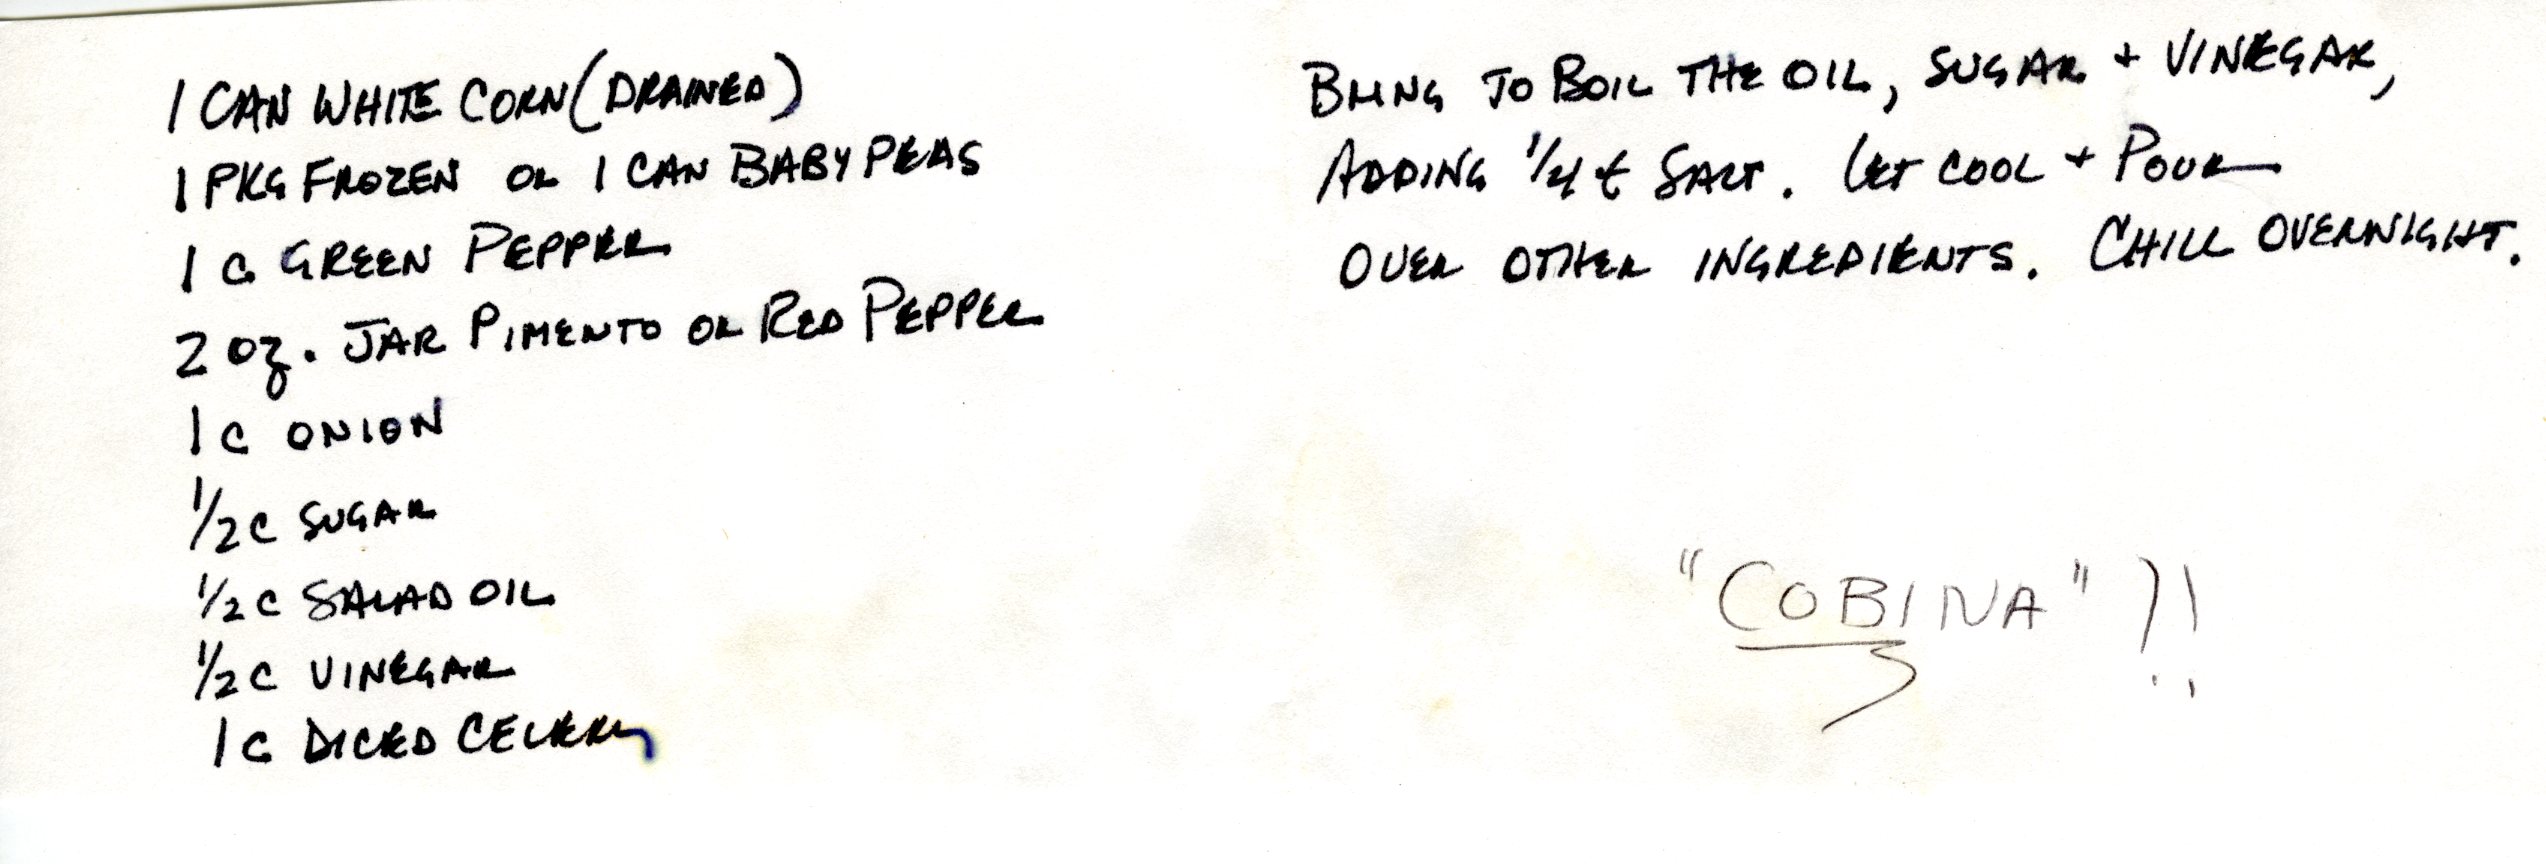 1 CAN WHITE CORN (DRAINED)
1 PKG FROZEN OR 1 CAN BABY PEAS
1 C GREEN PEPPER
2 oz. JAR PIMENTO OR RED PEPPER
1 C ONION
1/2 C SUGAR
1/2 C SALAD OIL
1/2 C VINEGAR
1 C DICED CELERY
BRING TO BOIL THE OIL, SUGAR + VINEGAR,
ADDING 1/4 t SALT. LET COOL + POUR
OVER OTHER INGREDIENTS. CHILL OVERNIGHT.
"COBINA" ?!